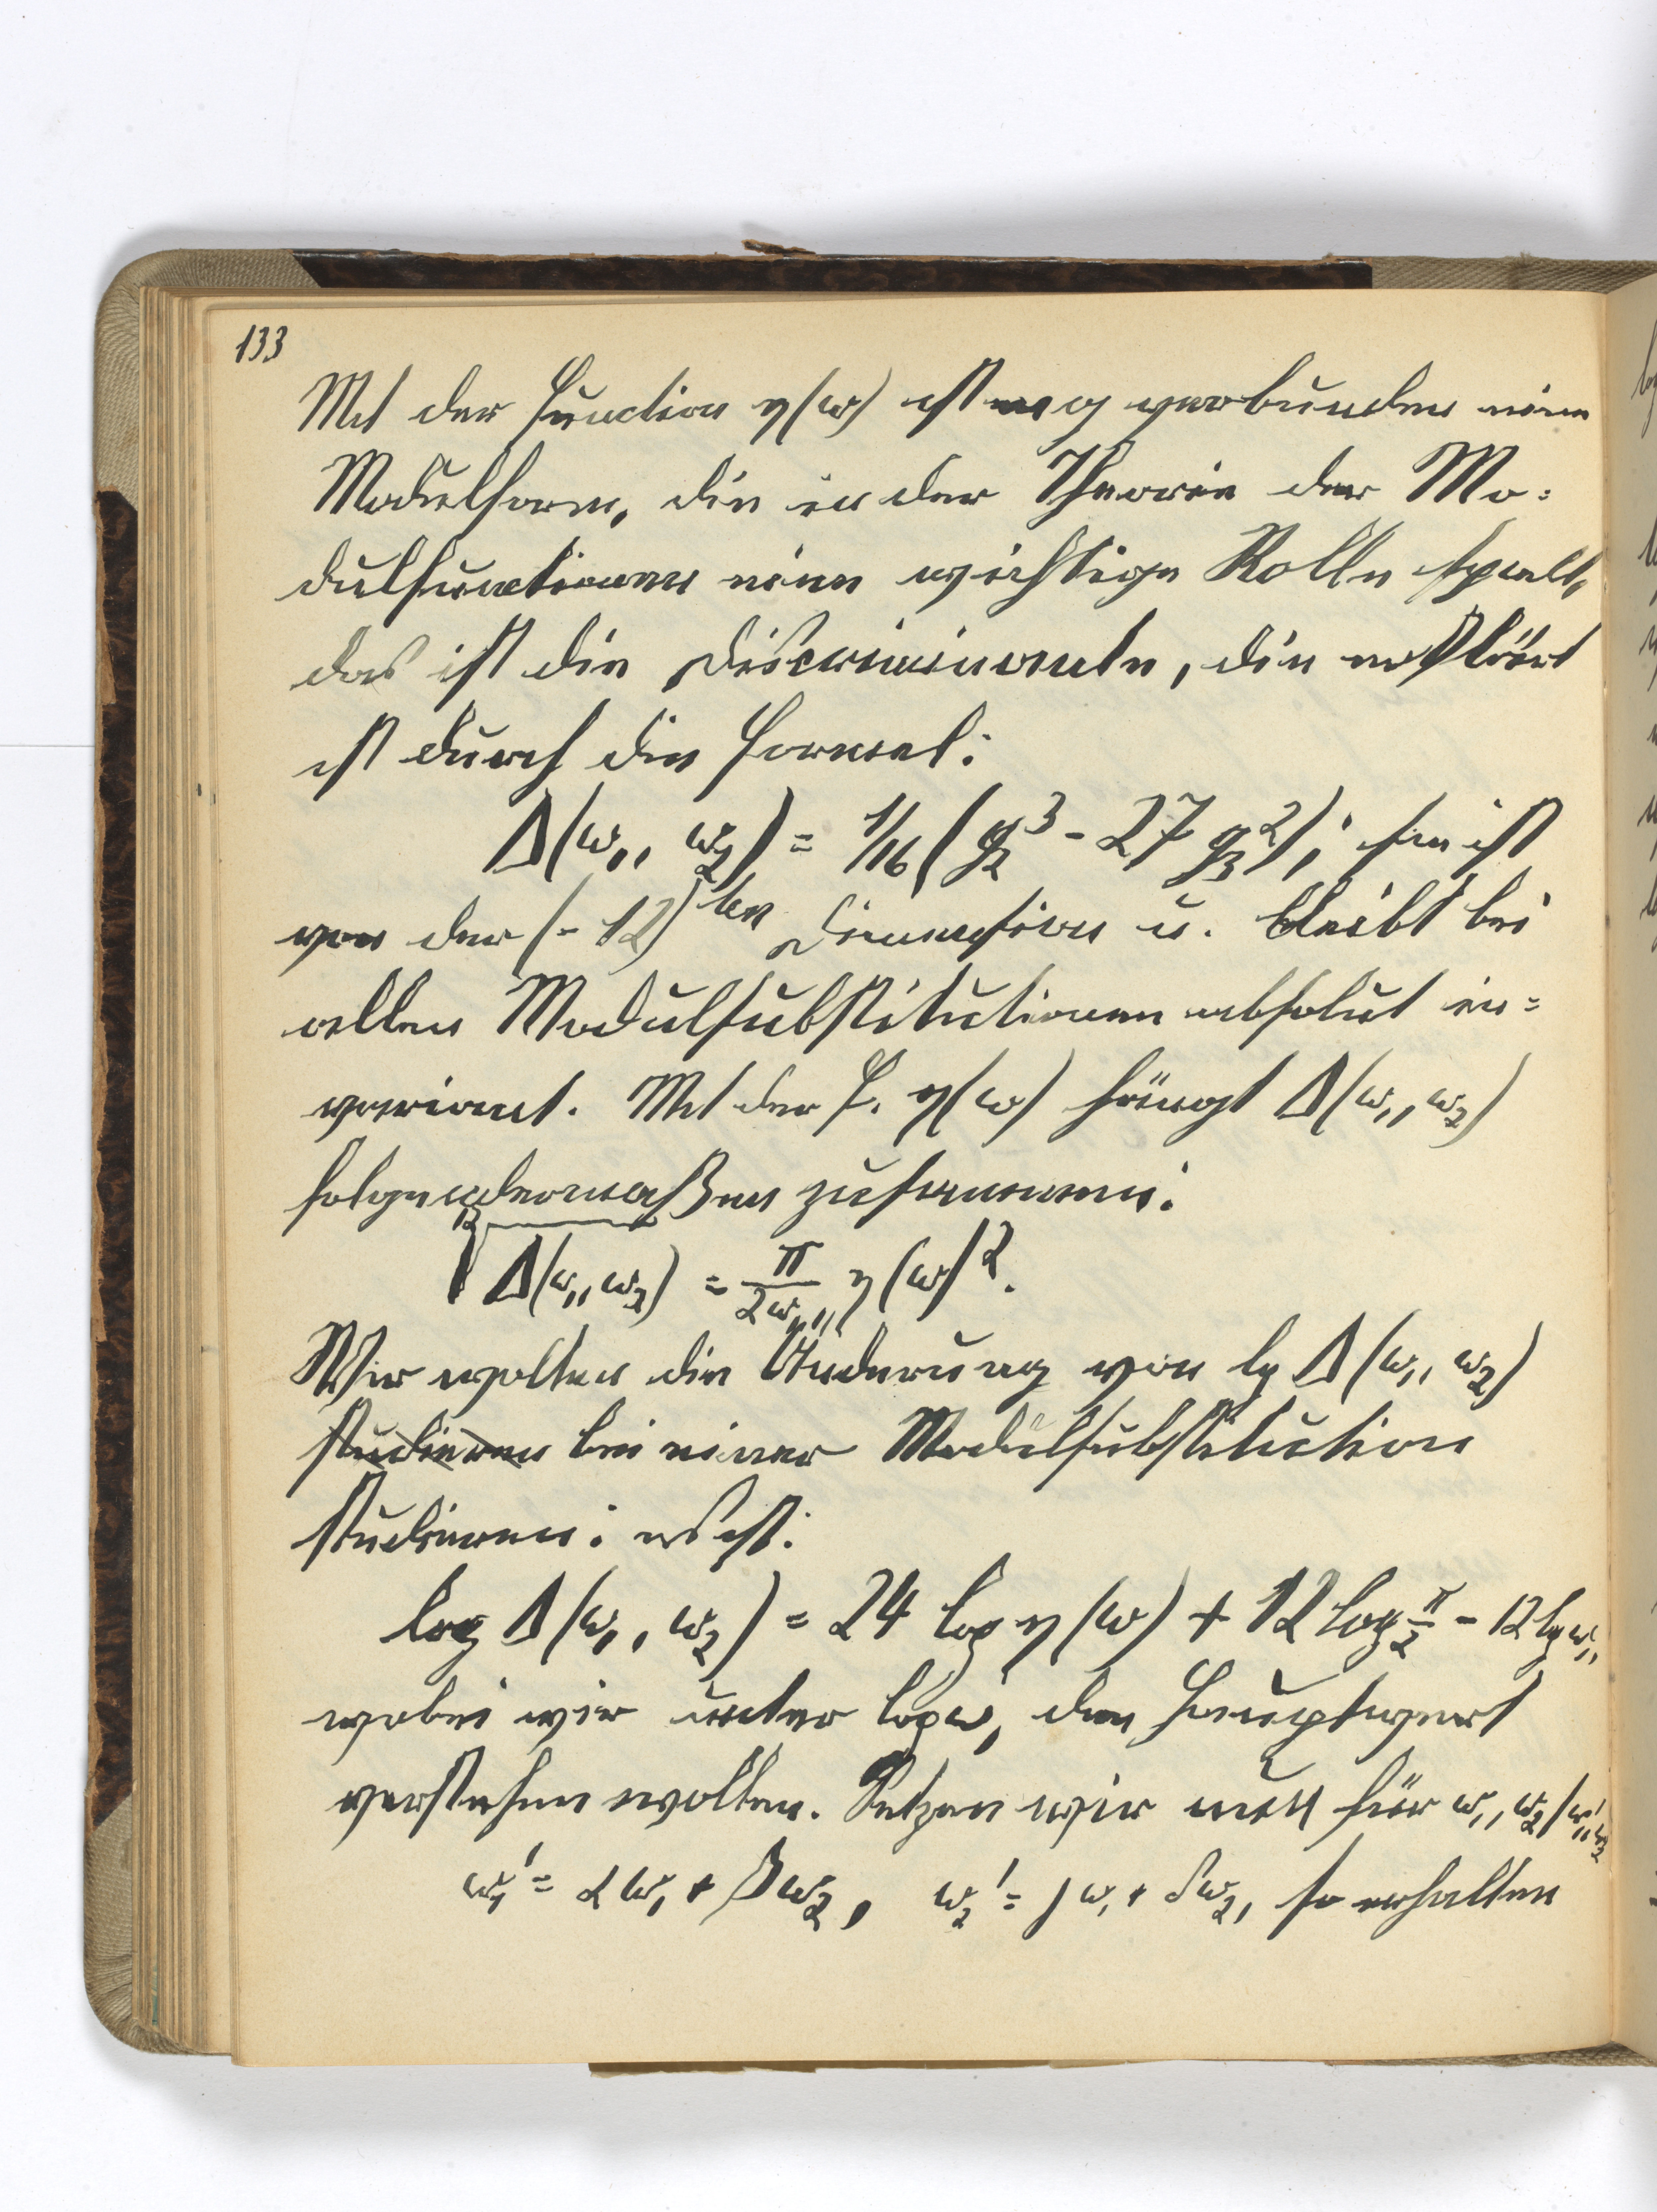 133
Mit der Function η(ω) ist eng verbunden eine
Modulform, die in der Theorie der Mo-
dulfunctionen eine wichtige Rolle spielt,
das ist die Discriminante, die erklärt
ist durch die Formel:
Δ(ω₁, ω₂) = 1/16 (g₂³ - 27 g₃²); sie ist
von der (-12)ten Dimension u. bleibt bei
allen Modulsubstitutionen absolut in=
variant. Mit der F. η(ω) hängt Δ(ω₁, ω₂)
folgendermaßen zusammen:
¹²√Δ(ω₁, ω₂) = π/2ω₁ η(ω)².
Wir wollen die Änderung von lg Δ(ω₁, ω₂)
studieren bei einer Modulsubstitution
studieren: es ist:
log Δ(ω₁, ω₂) = 24 log η(ω) + 12 log π/2 - 12 lg ω₁,
wobei wir unter log ω₁ den Hauptwert
verstehen wollen. Setzen wir nun für ω₁, ω₂ / ω₁', ω₂'
ω₁' = αω₁ + βω₂, ω₂' = γω₁ + δω₂, so erhalten